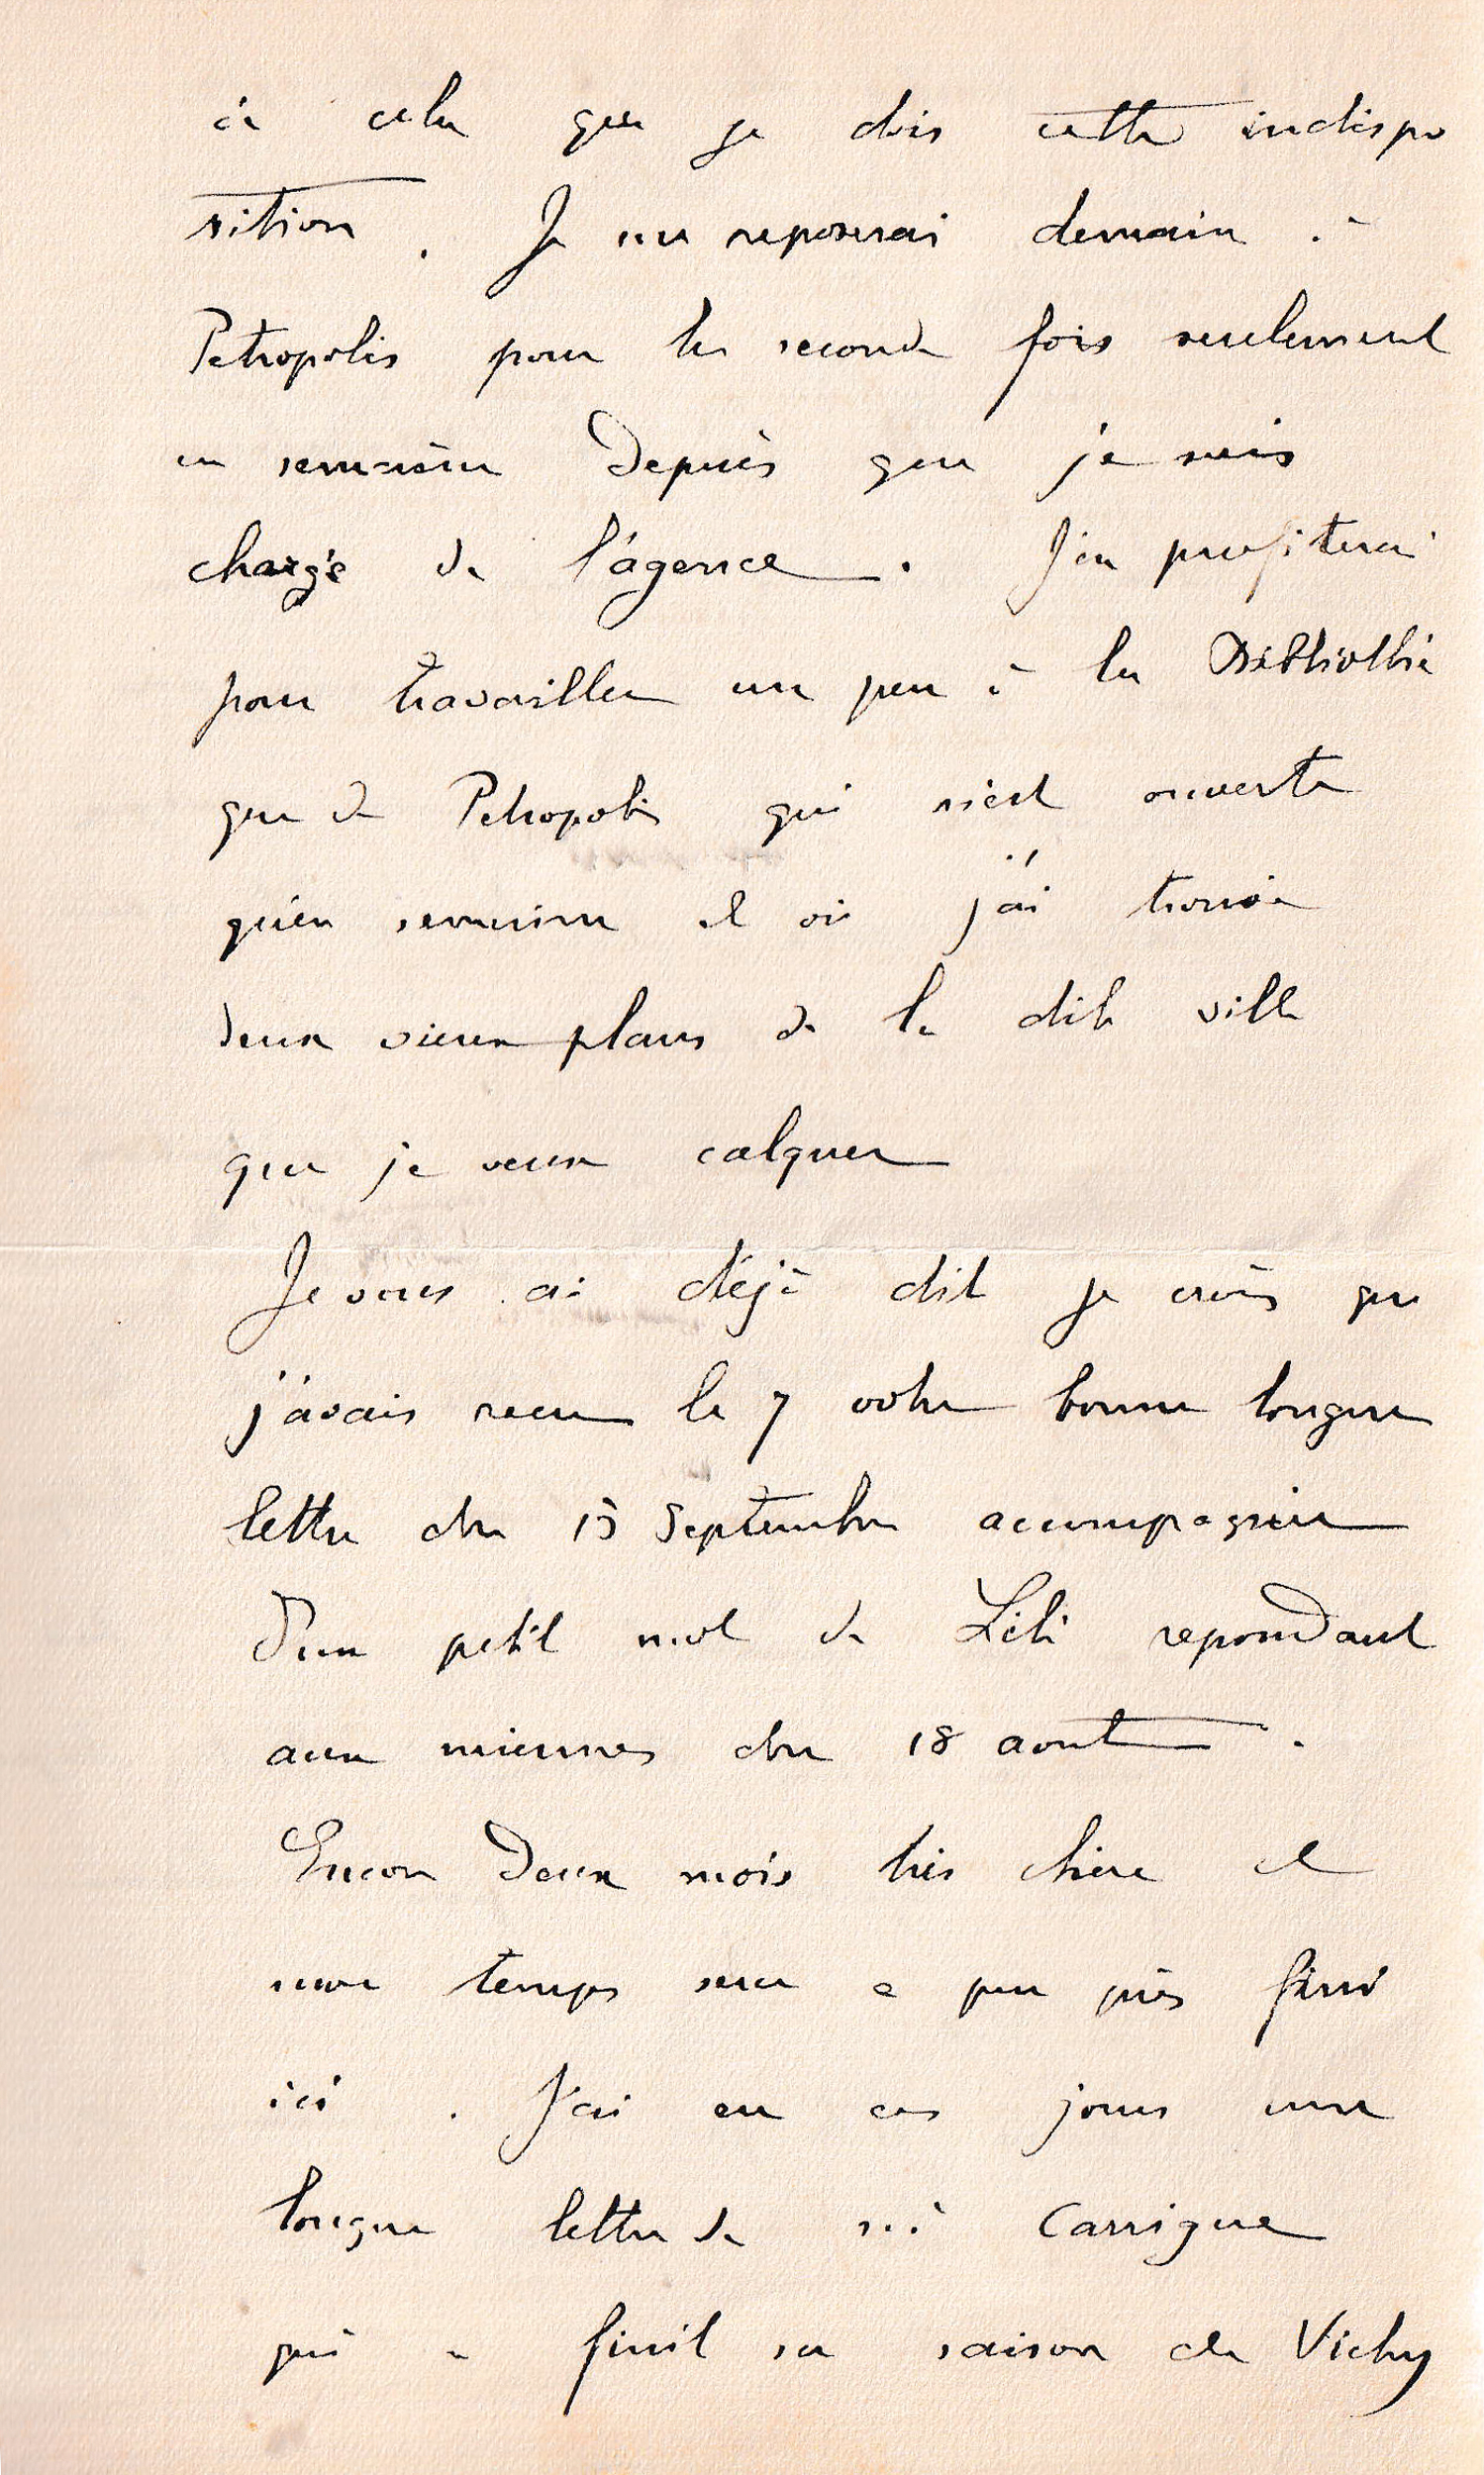 à cela que je dois cette indispo
sition. Je me reposerai demain à
Petropolis pour la seconde fois seulement
en semaine depuis que je suis
chargé de l'agence. J'en profiterai
pour travailler un peu à la Bibliothè
que de Petropolis qui n'est ouverte
qu'en semaine et où j'ai trouvé
deux vieux plans de la dite ville
que je veux calquer
Je vous ai déjà dit je crois que
j'avais reçu le 7 votre bonne longue
lettre du 15 Septembre accompagnée
d'un petit mot de Lili repondant
aux miennes du 18 aout.
Encore deux mois très chère et
mon temps sera a peu près fini
ici. J'ai eu ces jours une
longue lettre de Carrigue
qui a finit sa saison de Vichy